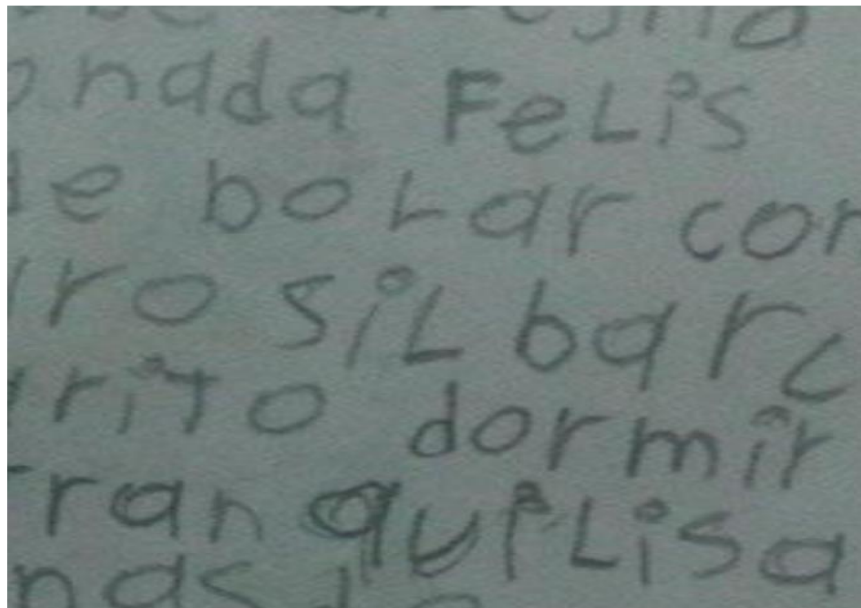 nada FeLis
e boLar con
ro siLbar
rito dormir
ranquiLisa